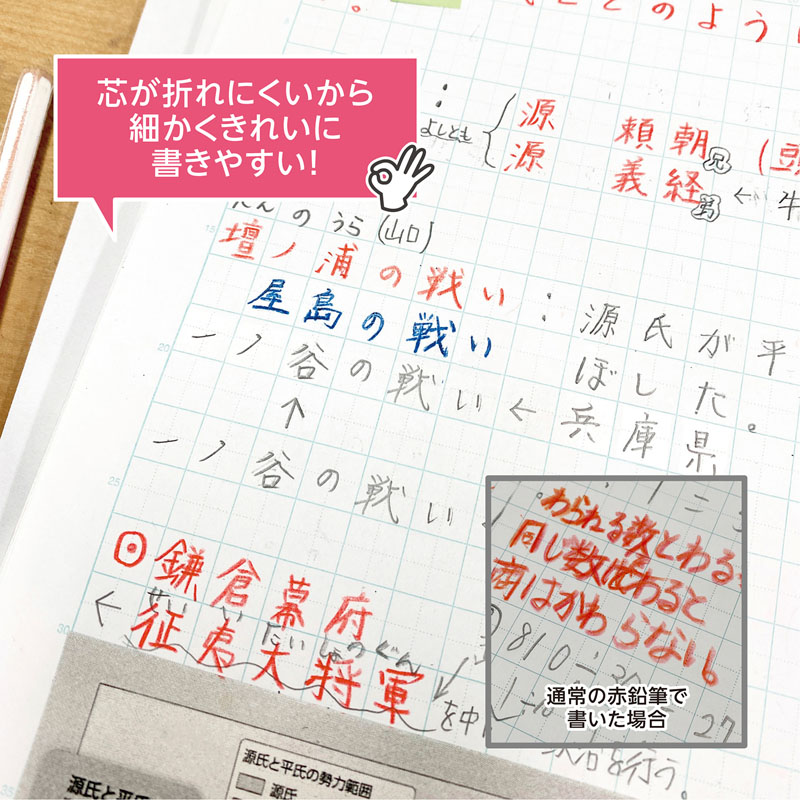 どのように
芯が折れにくいから
細かくきれいに
書きやすい!
よしとも
源 頼朝 兄 (頭
源 義経 弟 ← 牛
だんのうら(山口)
壇ノ浦の戦い:源氏が平
屋島の戦い ぼした。
一ノ谷の戦い ← 兵庫県
↑
一ノ谷の戦い
鎌倉幕府
← せいいたいしょうぐん
征夷大将軍
を中
わられる数とわる
同し数はわると
商はかわらない。
810÷30= 27
通常の赤鉛筆で
書いた場合
を行う。
源氏と平氏の勢力範囲
源氏
源氏と平氏
15
20
25
30
35